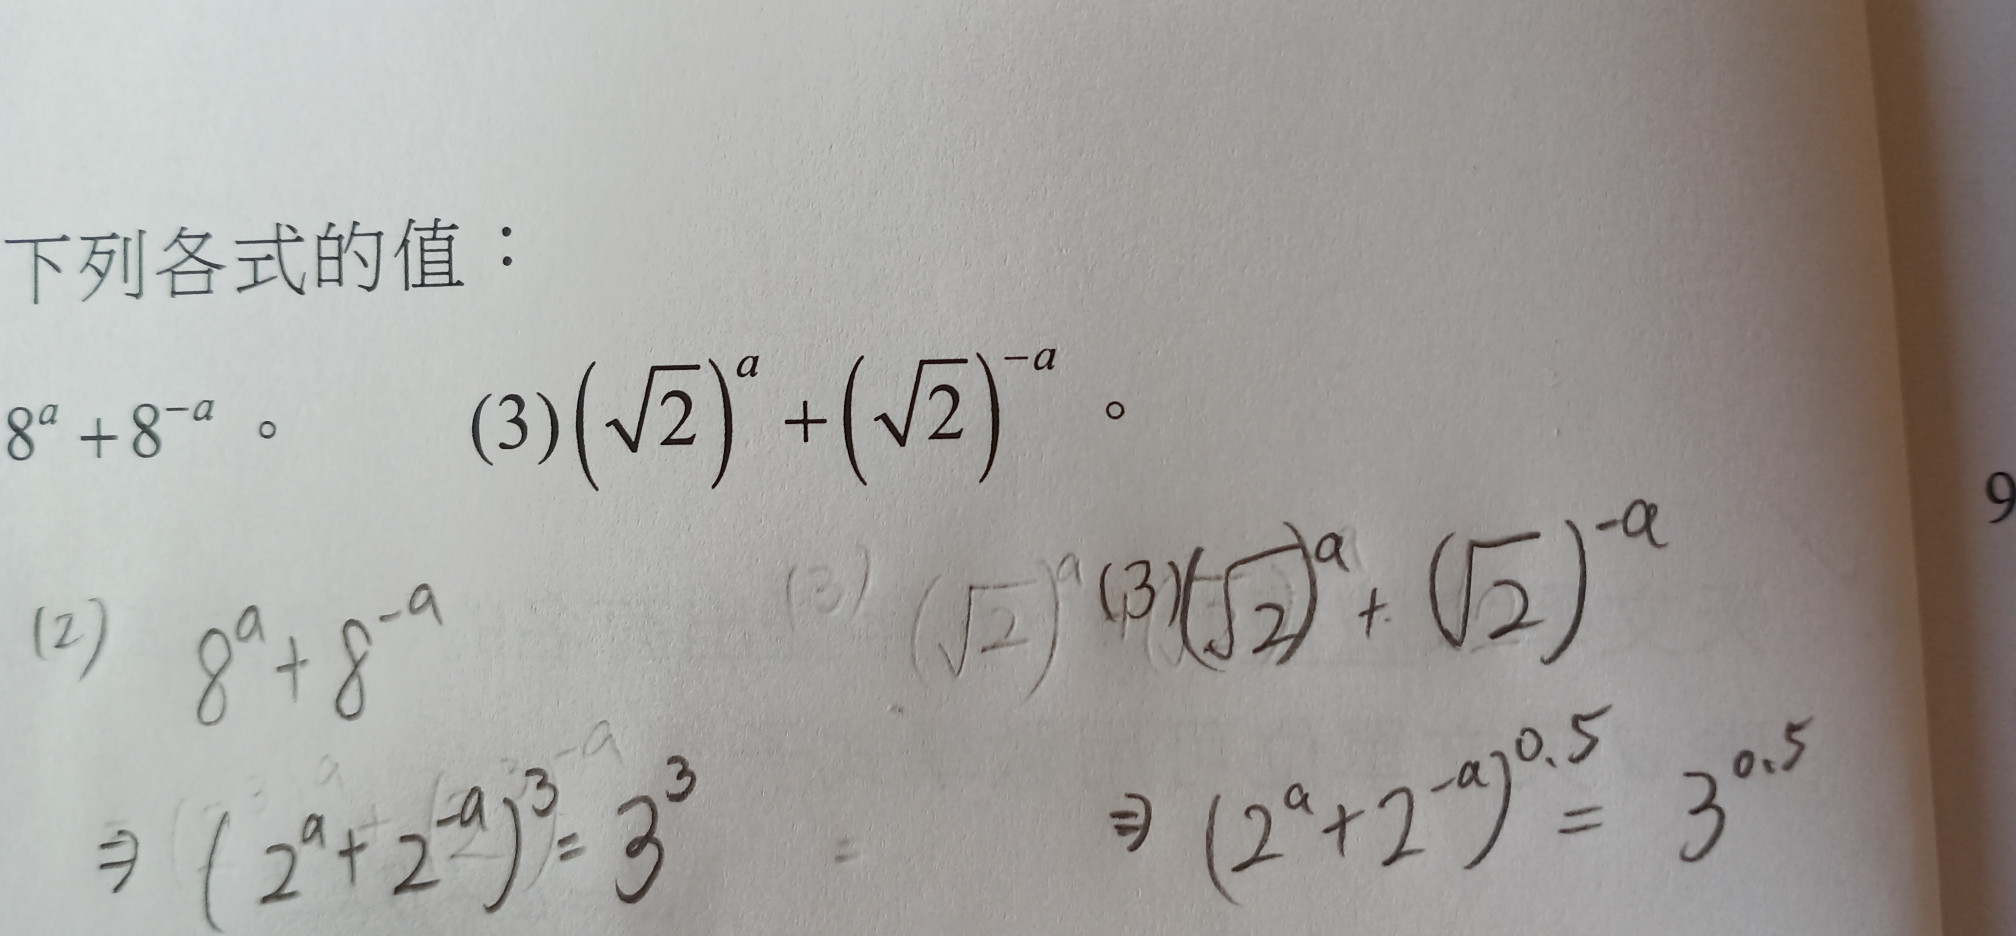 下列各式的值：
8^a + 8^{-a} 。 (3) (√2)^a + (√2)^{-a} 。
9
(2) 8^a + 8^{-a} (3) (√2)^a (3) (√2)^a + (√2)^{-a}
⇒ (2^a + 2^{-a})^3 = 3^3 = ⇒ (2^a + 2^{-a})^{0.5} = 3^{0.5}